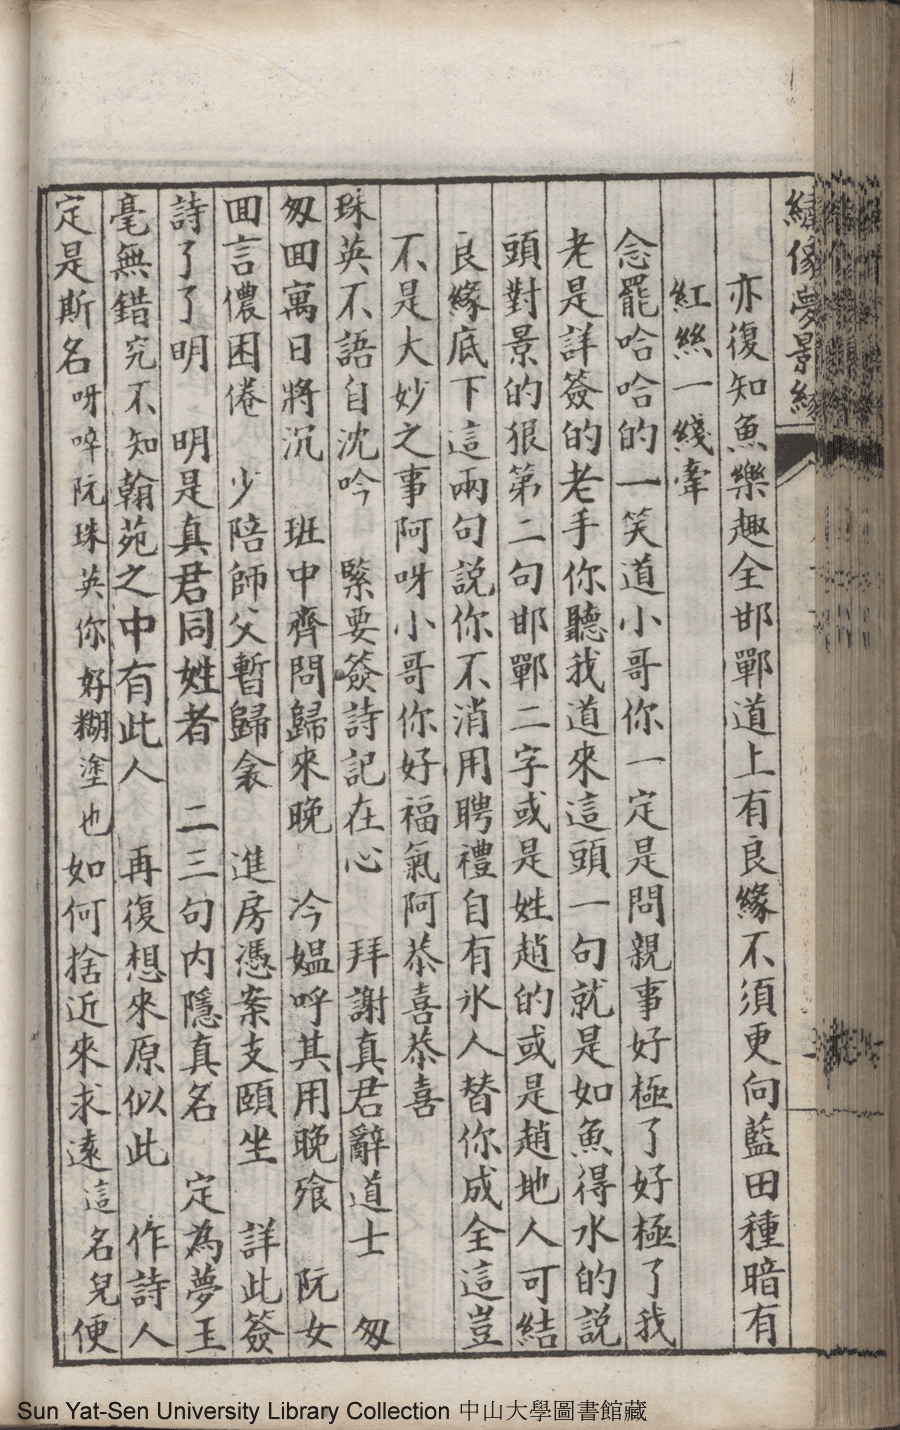 繡像夢景緣
亦復知魚樂趣全邯鄲道上有良緣不須更向藍田種暗有
紅絲一綫牽
念罷哈哈的一笑道小哥你一定是問親事好極了好極了我
老是詳簽的老手你聽我道來這頭一句就是如魚得水的說
頭對景的狠第二句邯鄲二字或是姓趙的或是趙地人可結
良緣底下這兩句說你不消用聘禮自有氷人替你成全這豈
不是大妙之事阿呀小哥你好福氣阿恭喜恭喜
珠英不語自沈吟 緊要簽詩記在心 拜謝真君辭道士 匆
匆囬寓日將沉 班中齊問歸來晚 冷媼呼其用晚飱 阮女
囬言儂困倦 少陪師父暫歸衾 進房憑案支頤坐 詳此簽
詩了了明 明是真君同姓者 二三句内隱真名 定為夢玉
毫無錯究不知翰苑之中有此人 再復想來原似此 作詩人
定是斯名呀啐阮珠英你好糊塗也如何捨近來求遠這名兒便
Sun Yat-Sen University Library Collection 中山大學圖書館藏